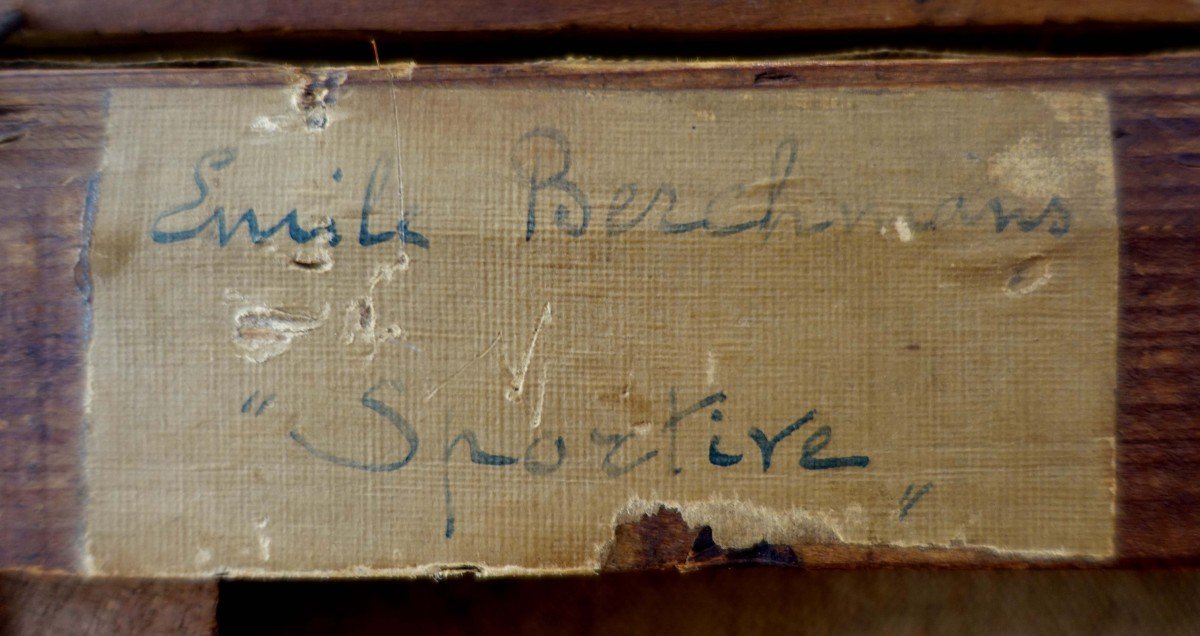 Emile Berchmans
"Sportive"